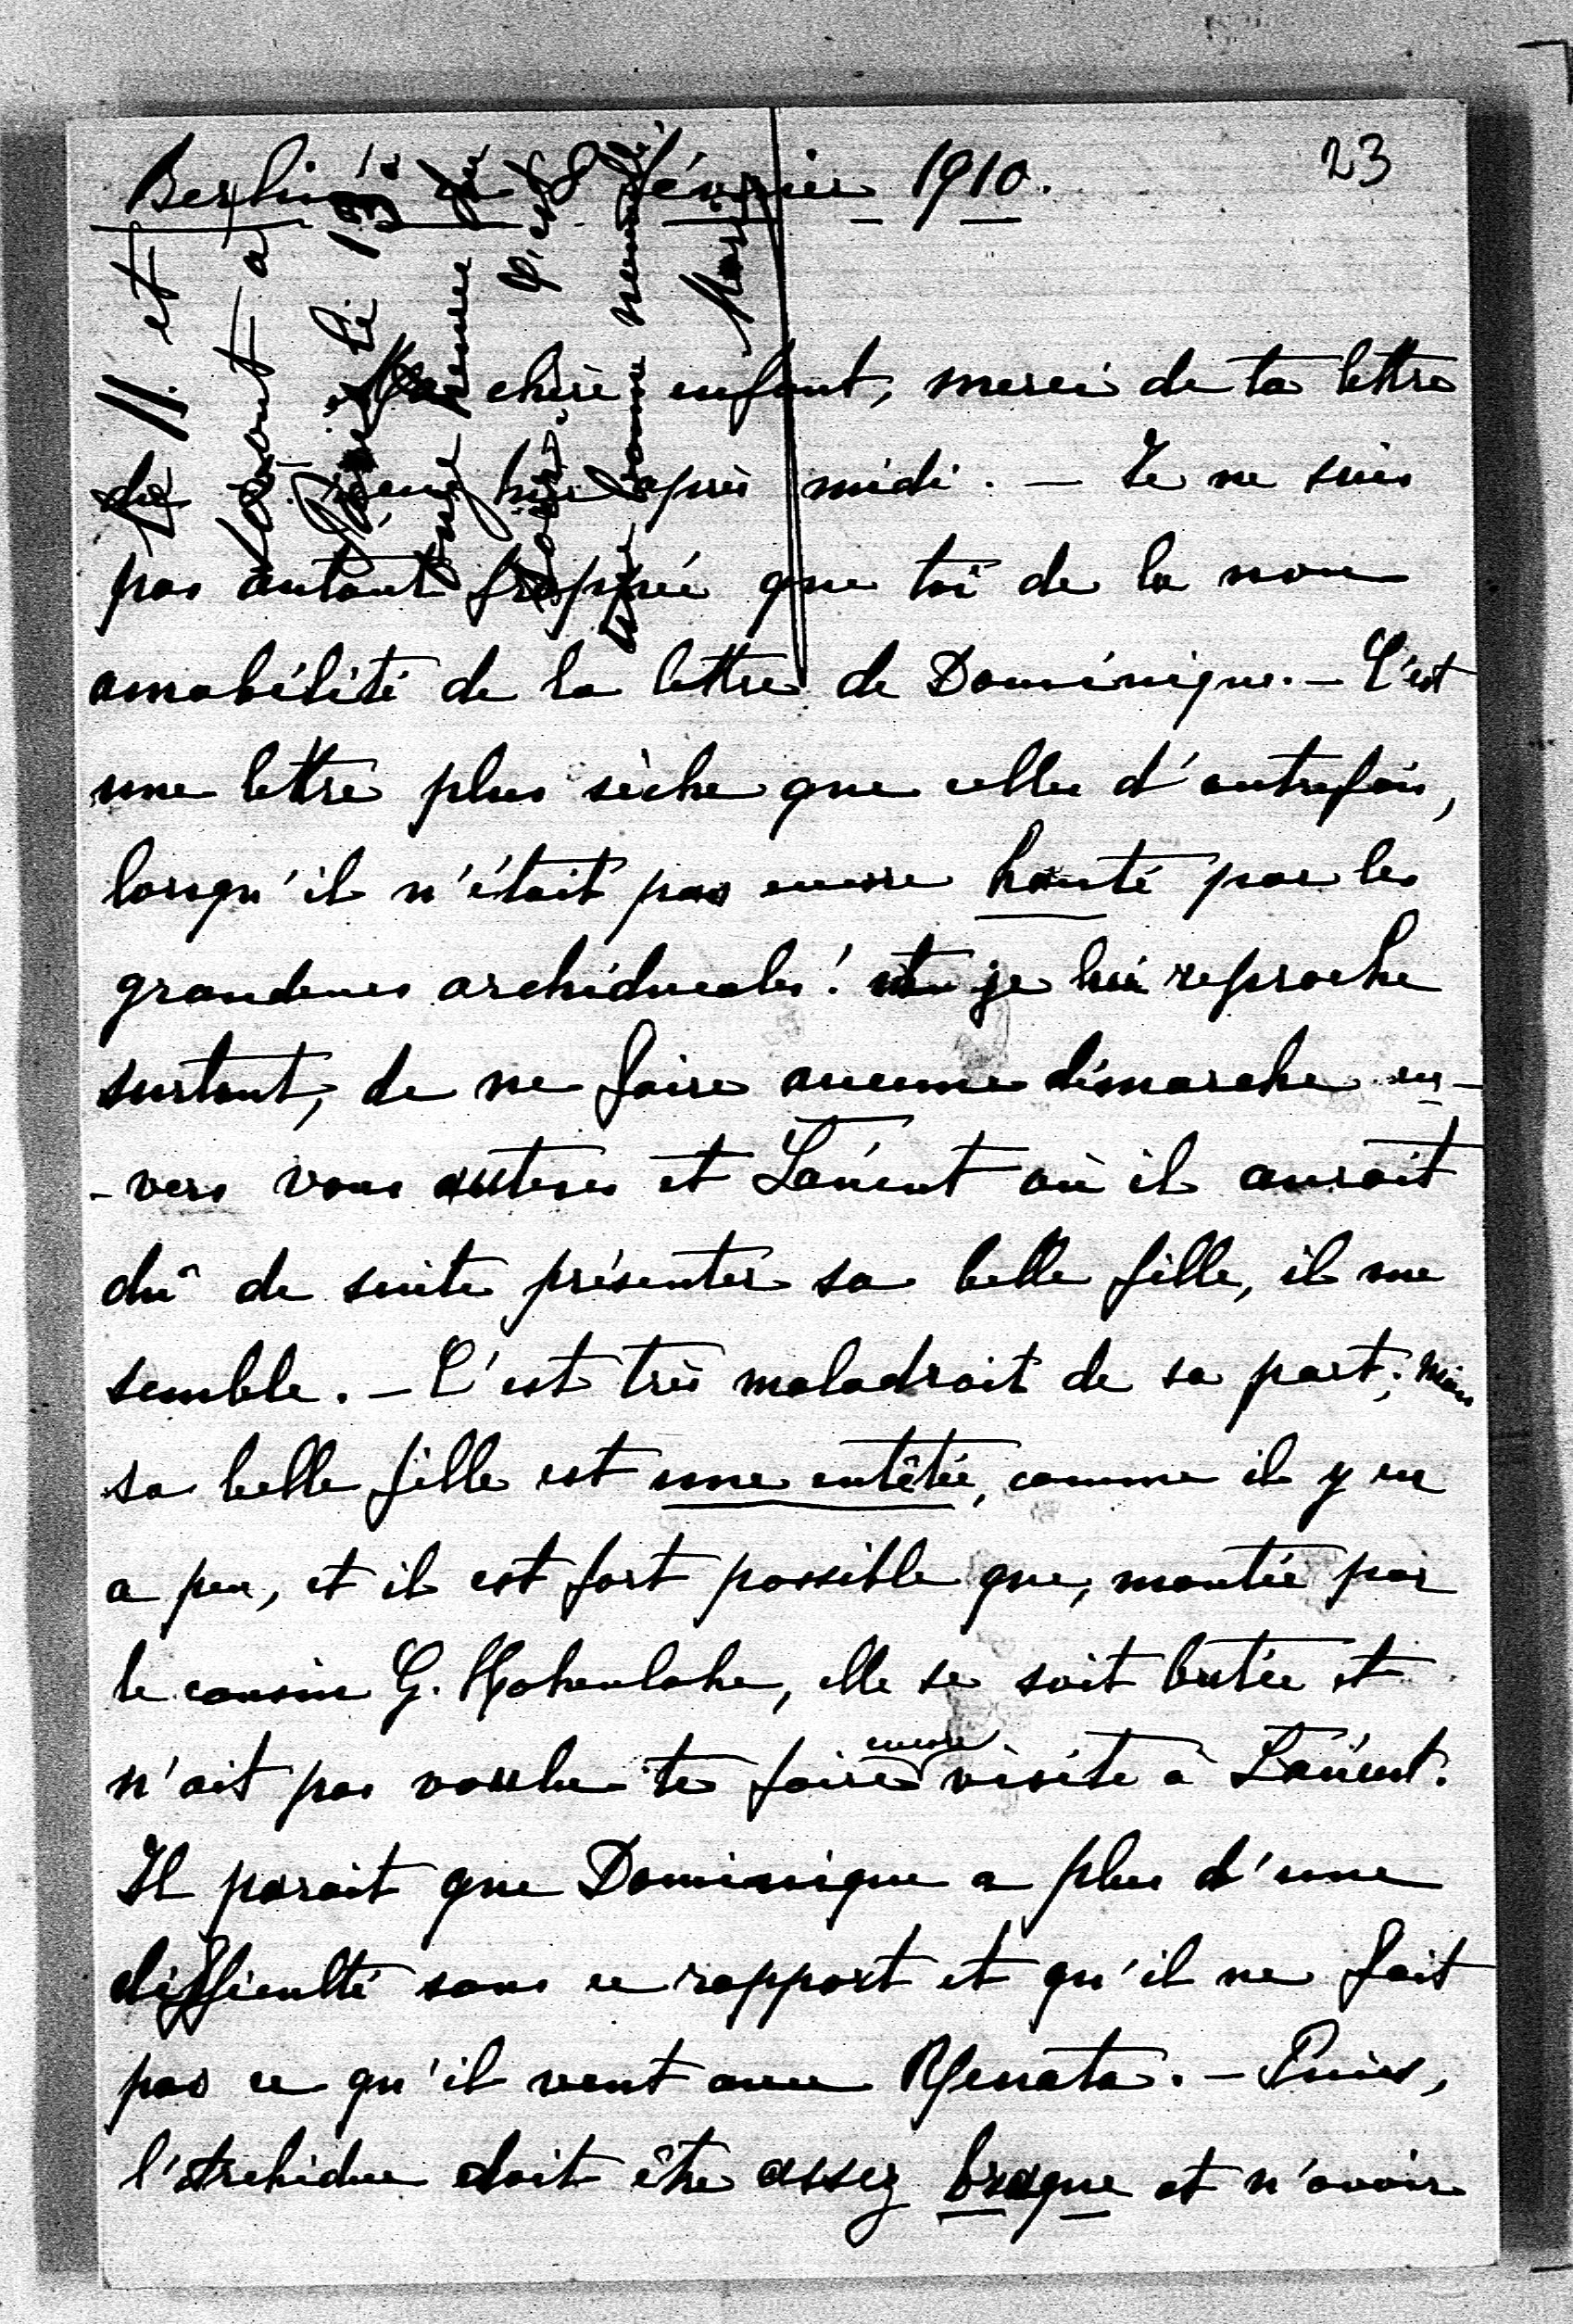 23
Berlin, le 8 février 1910.
Ma chère enfant, merci de ta lettre
reçue hier après midi. — Je ne suis
pas autant frappée que toi de la non
amabilité de la lettre de Dominique. — C'est
une lettre plus sèche que celles d'autrefois,
lorsqu'il n'était pas encore hanté par les
grandeurs archiducales! je lui reproche
surtout, de ne faire aucune démarche en-
-vers vous autres et Lancut où il aurait
dû de suite présenter sa belle fille, il me
semble. — C'est très maladroit de sa part; Mais
sa belle fille est une entêtée, comme il y en
a peu, et il est fort possible que, montée par
le cousin G. Hohenlohe, elle se soit butée et
n'ait pas voulu te faire encore visite à Lancut.
Il parait que Dominique a plus d'une
difficulté sous ce rapport et qu'il ne fait
pas ce qu'il veut avec Renata. — Puis,
l'Archiduc doit être assez braque et n'avoir